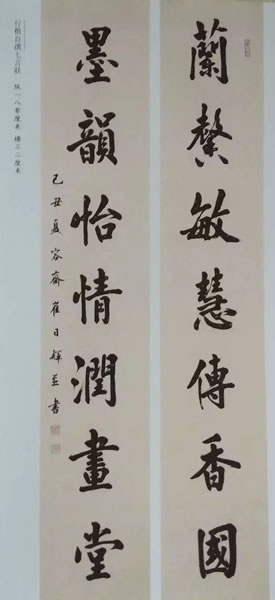 蘭馨敏慧傳香國
墨韻怡情潤畫堂
己丑夏容齋崔日輝並書
行楷自撰七言联　纵一八零厘米　横三二厘米